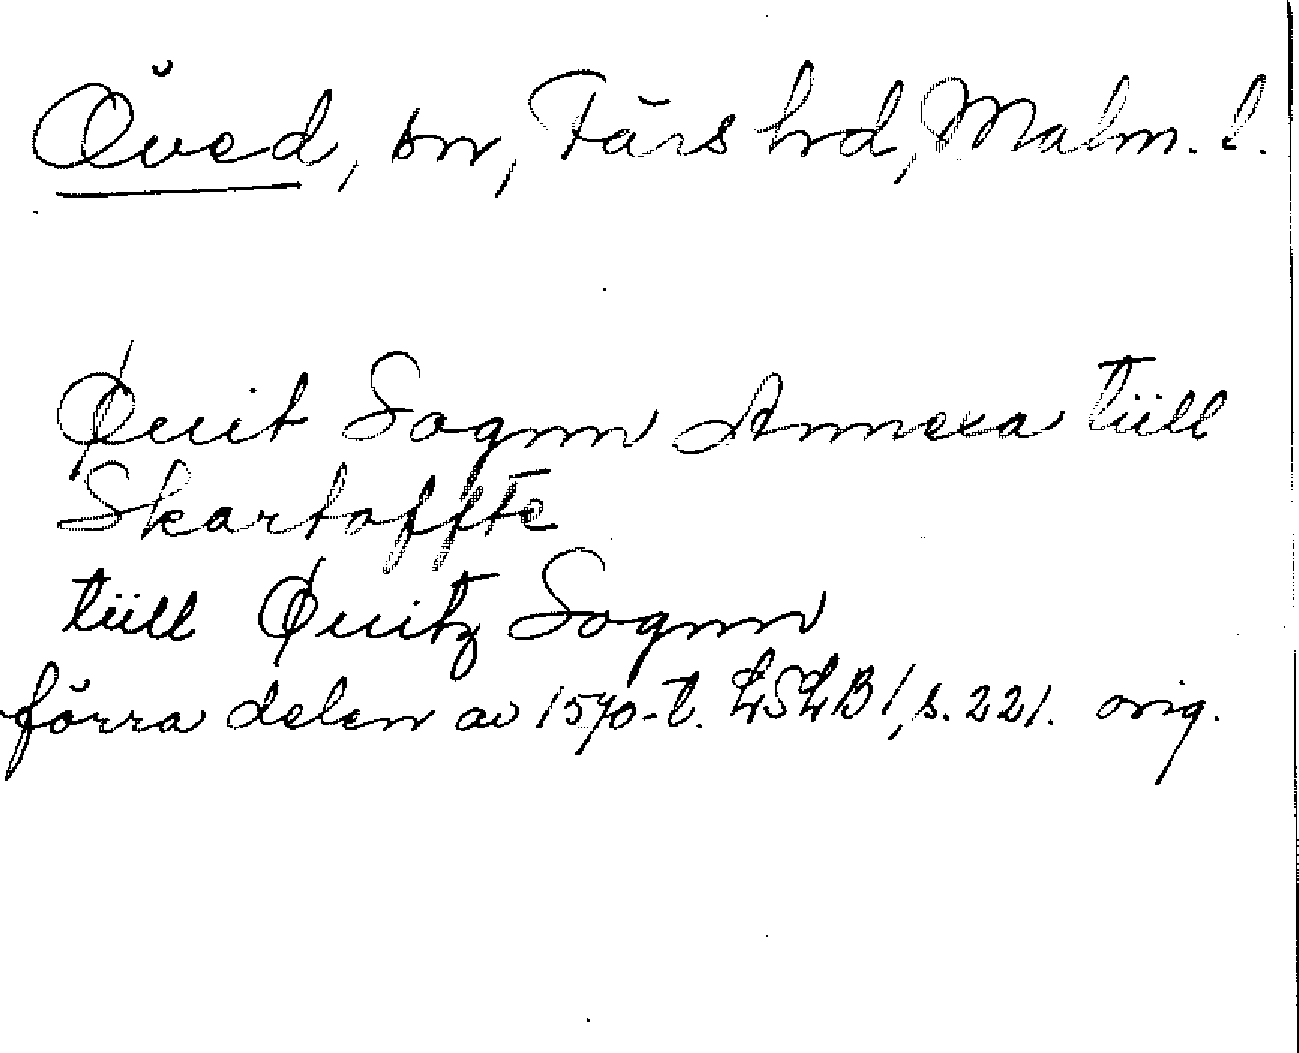 Öved, sn, Färs hrd, Malm. l.
Øuit Sognn Annexa tiill
Skartoffte
tiill Øuitz Sognn
förra delen av 1570-t. LSLB 1, s. 221. orig.